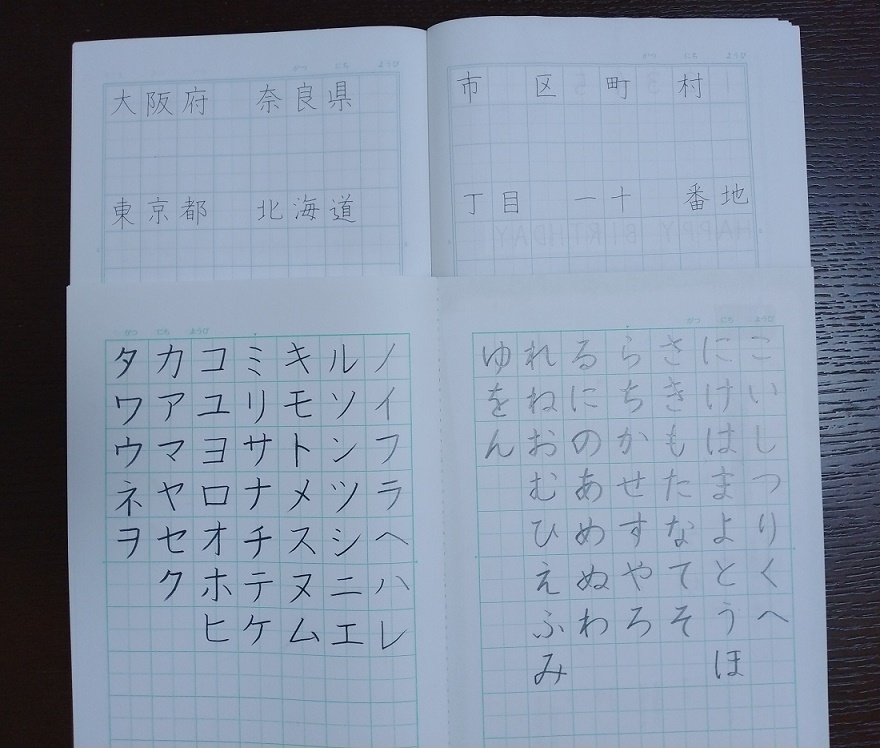 がつ にち ようび
大阪府 奈良県
東京都 北海道
がつ にち ようび
市 区 町 村
丁目 一十 番地
がつ にち ようび
こいしつりくへ
にけはまよとうほ
さきもたなてそ
らちかせすやろ
るにのあめぬわ
れねおむひえふみ
ゆをん
がつ にち ようび
ノイフラヘハレ
ルソンツシニエ
キモトメスヌム
ミリサナチテケ
コユヨロオホヒ
カアマヤセク
タワウネヲ